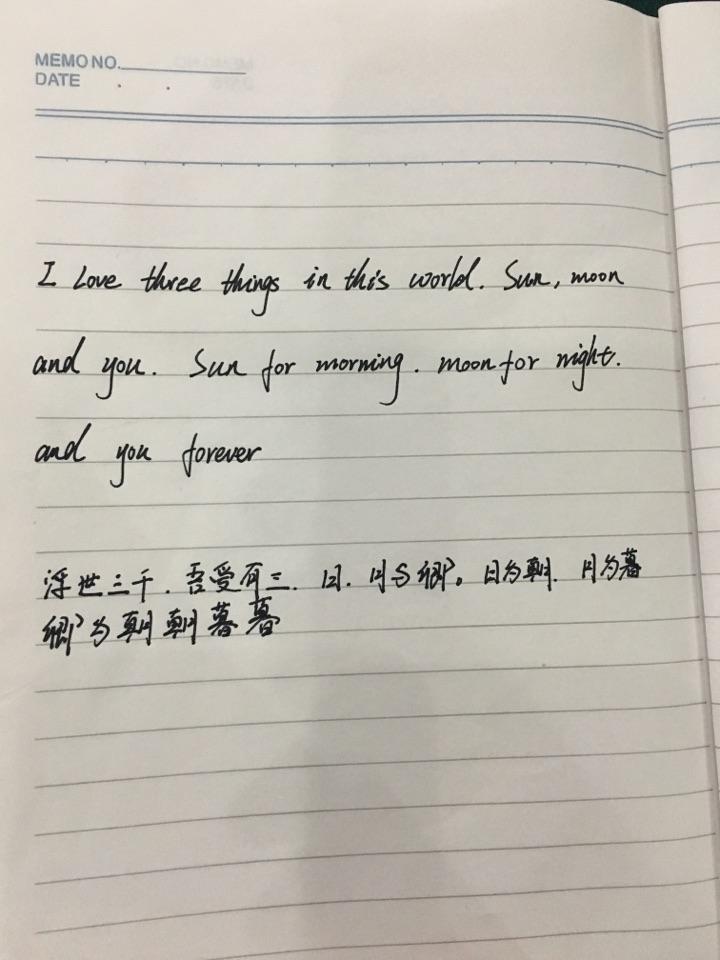 MEMO NO.
DATE . .
I Love three things in this world. Sun, moon
and you. Sun for morning. moon for night.
and you forever
浮世三千. 吾爱有三. 日. 月与卿。日为朝. 月为暮
卿为朝朝暮暮